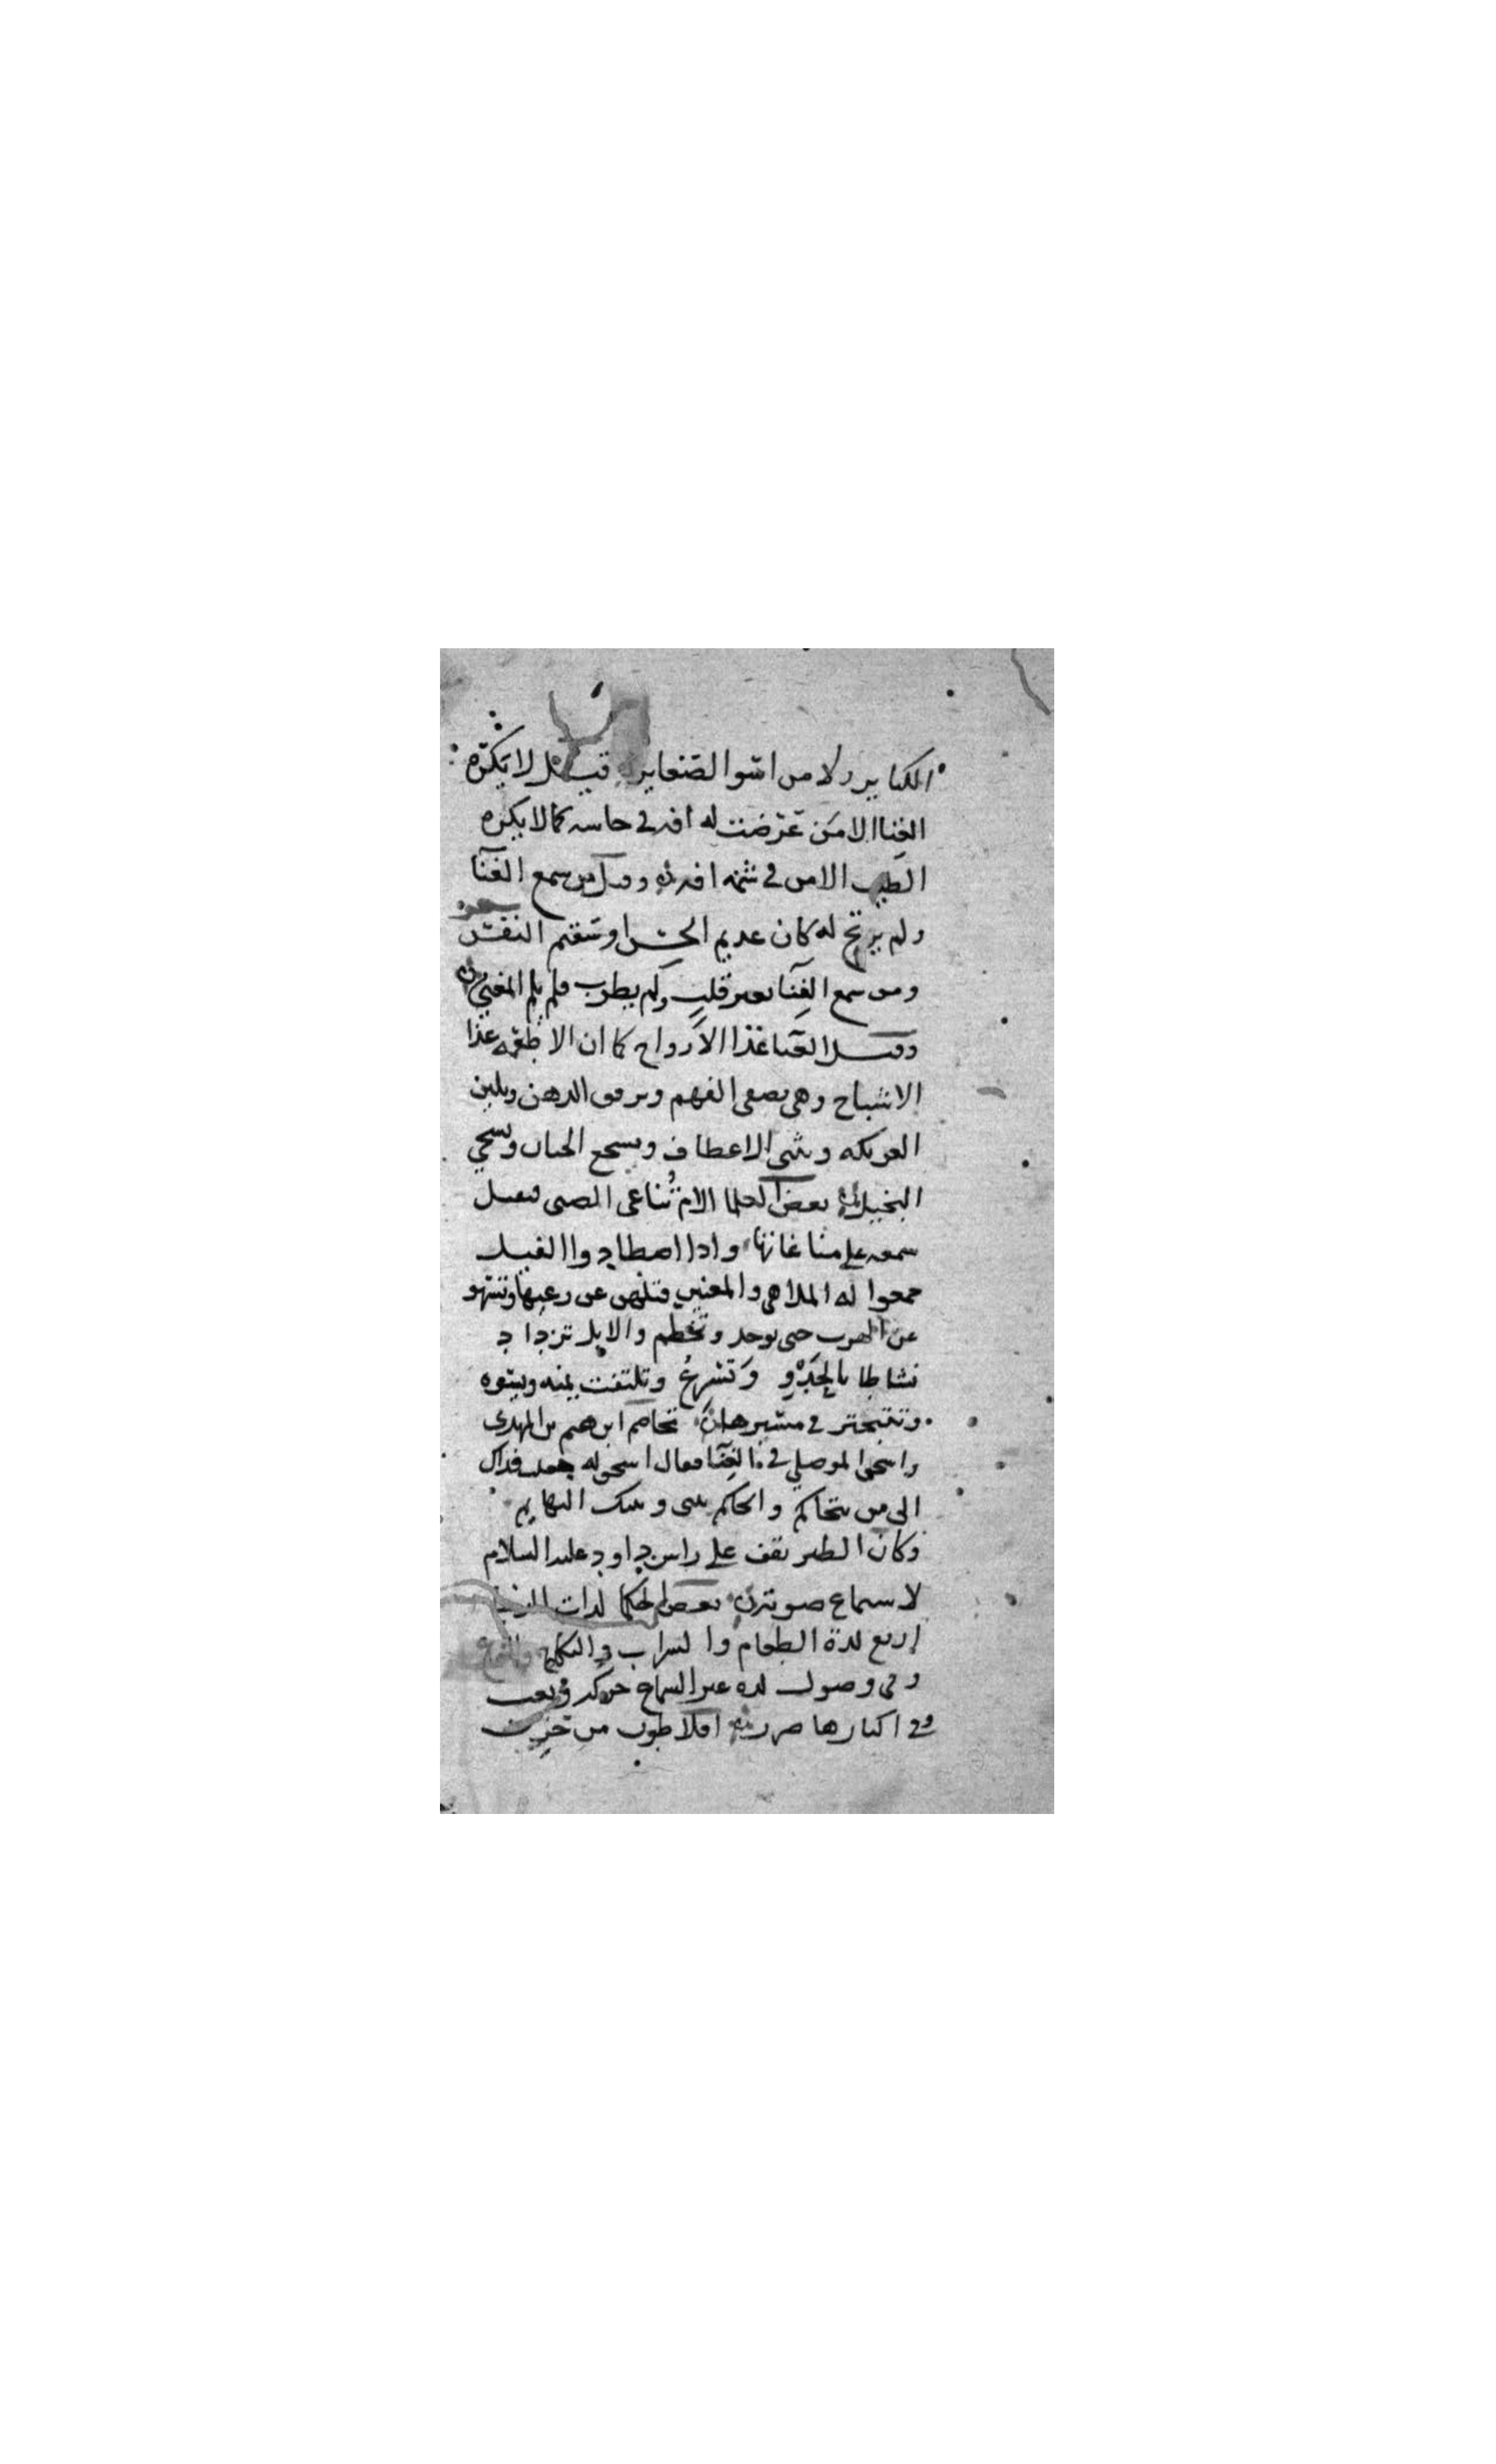 الكباير ولا من اسوا الصغاير قيل لا يكره
الغنا الا من عرضت له افه في حاسه كما لا يكره
الطيب الا من في شمه افه وقيل من سمع الغنآ
ولم يرتح له كان عديم الحس او سقيم النفس
ومن سمع الغنآ بغير قلب ولم يطرب فلم يلم المغني
وقيل الغنا غذا الارواح كما ان الاطعمه غذا
الاشباح وهي يصفى الفهم ويرقق الدهن ويلين
العريكه ويثنى الاعطاف ويسجع الجبان ويسخي
البخيل بعض العلما الام تُناغى الصبى فيقبل
سمعه على مناغاتها وادا اصطادوا الفيل
جمعوا له الملاهي والمغنين فتلهى عن رعيها وتسهو
عن الهرب حتى يوخد وتخطم والابل تزداد
نشاطا بالحَدْوِ وتَشْرعُ وتلتفت يمنه ويسره
وتتبختر في مشيرها تخاصم ابرهيم بن المهدى
واسحق الموصلي في الغنآ فقال اسحق له جعلت فداك
الى من نتحاكم والحاكم بينى وبينك البهايم
وكان الطير يقف على راس داود عليه السلام
لاسماع صوته بعض الحكما لدات الدنيا
اربع لدة الطعام والشراب والنكاح والسماع
وفى وصول لده غير السماع حركه وتعب
وفي اكثارها ضرر افلاطون من حَزِن